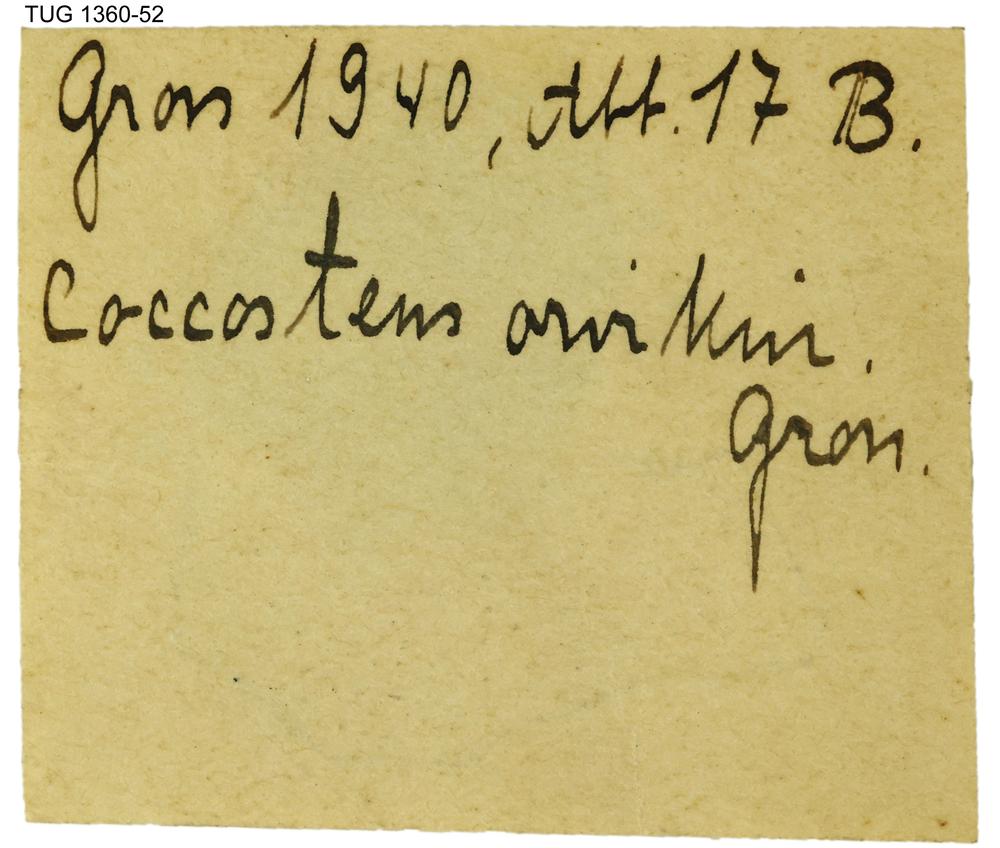 TUG 1360-52
Gross 1940, Abb. 17 B.
Coccosteus orvikui.
Gross.